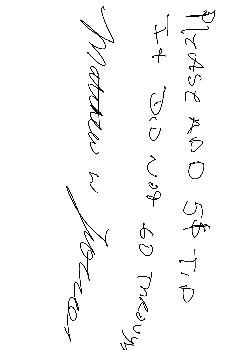 PLEASE ADD 5$ TIP
It DID Not GO THROUGH
Matthew W